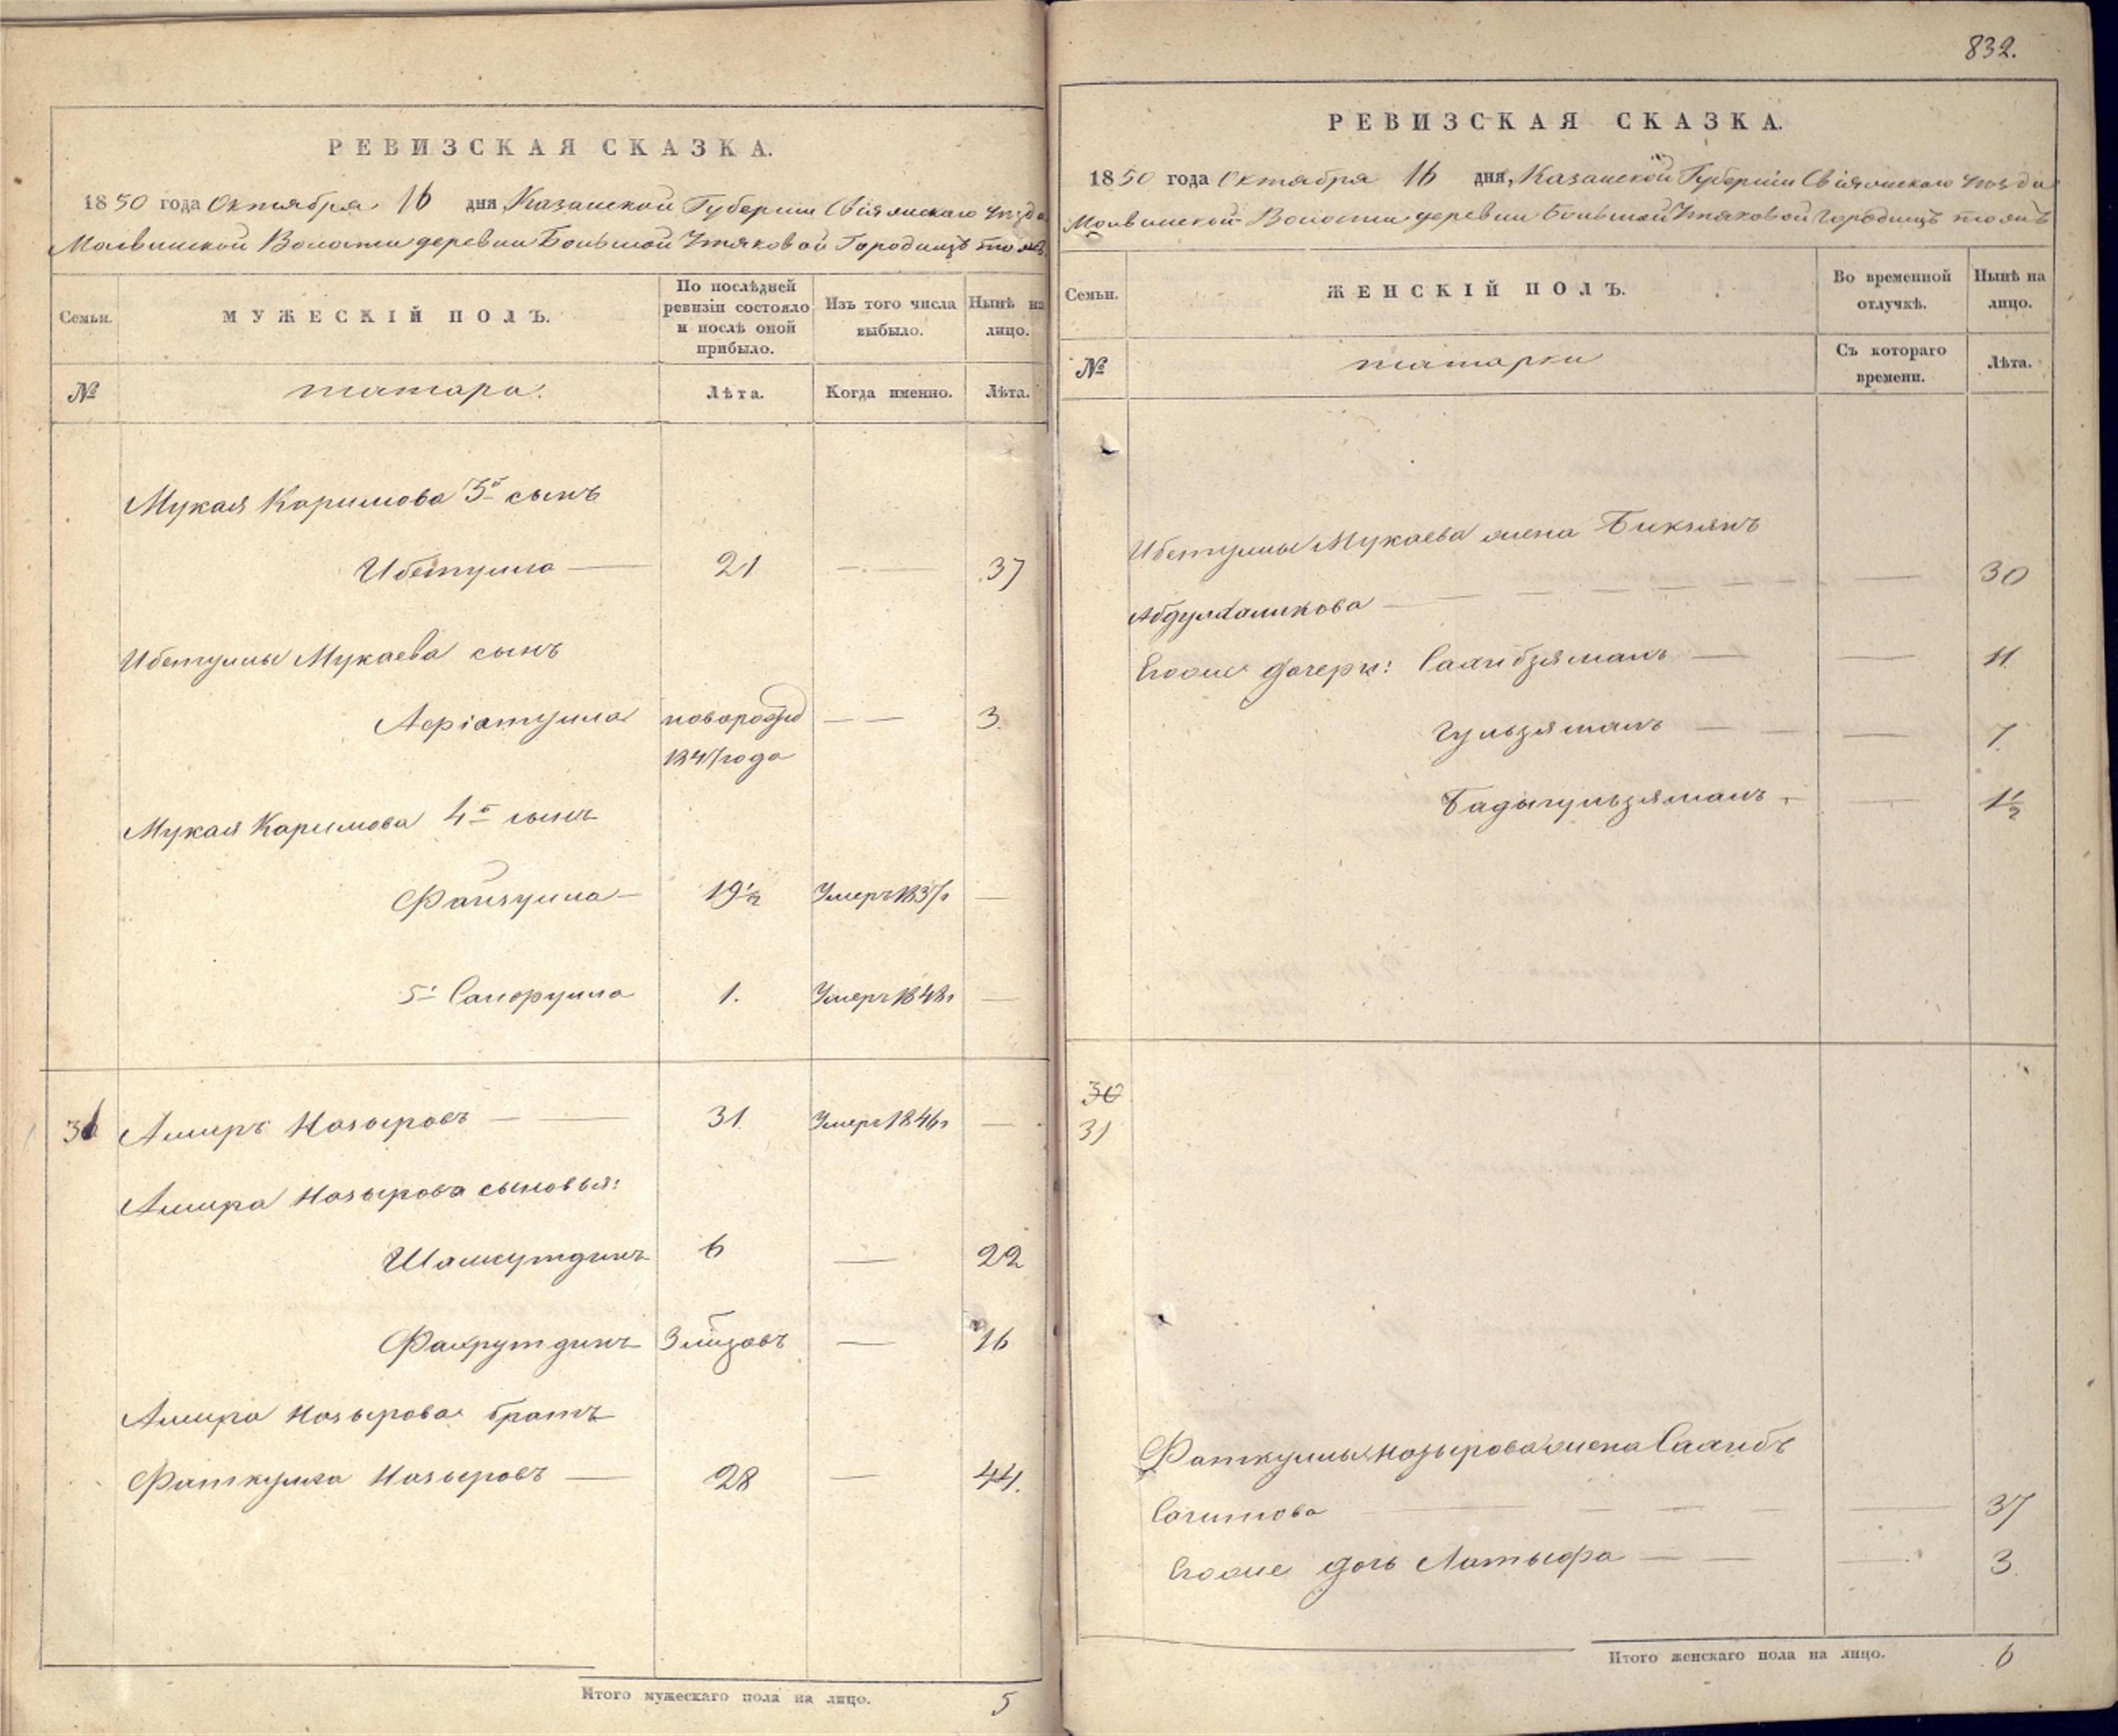 РЕВИЗСКАЯ СКАЗКА.
1850 года Октября 16 дня, Казанской Губерніи Свіяжскаго уѣзда
Волости деревни Большой Утяковой Городище тожъ
Семьи. МУЖЕСКІЙ ПОЛЪ. По послѣдней ревизіи состояло и послѣ оной прибыло. Изъ того числа выбыло. Нынѣ на лицо.
№ татара. Лѣта. Когда именно. Лѣта.
Мукая Каримова 3й сынъ
Ибетулла — 21 — 37
Ибетуллы Мукаева сынъ
новорожд — — 3.
1847 года
Мукая Каримова 4й сынъ
Файзулла — 19½ Умеръ 1837г —
5й 1. Умеръ 1848г —
31 Амиръ Назыровъ — — 31. Умеръ 1846г —
Амира Назырова сыновья:
6 — 22
Фахрутдинъ — 16
Амира Назырова братъ
Фаткулла Назыровъ — 28 — 44.
Итого мужескаго пола на лицо. 5
832.
РЕВИЗСКАЯ СКАЗКА.
1850 года Октября 16 дня, Казанской Губерніи Свіяжскаго уѣзда
Волости деревни Большой Утяковой Городище тожъ
Семьи. ЖЕНСКІЙ ПОЛЪ. Во временной отлучкѣ. Нынѣ на лицо.
№ татарки Съ котораго времени. Лѣта.
Ибетуллы Мукаева жена
— — 30
Егоже дочери: — — 11.
Гульзяманъ — — — 7.
Бадыгульзяманъ — — 1½
30
31
Фаткуллы Назырова жена Сагибъ
Сагитова — — — — 37
Егоже дочь Латыфа — — — 3.
Итого женскаго пола на лицо. 6